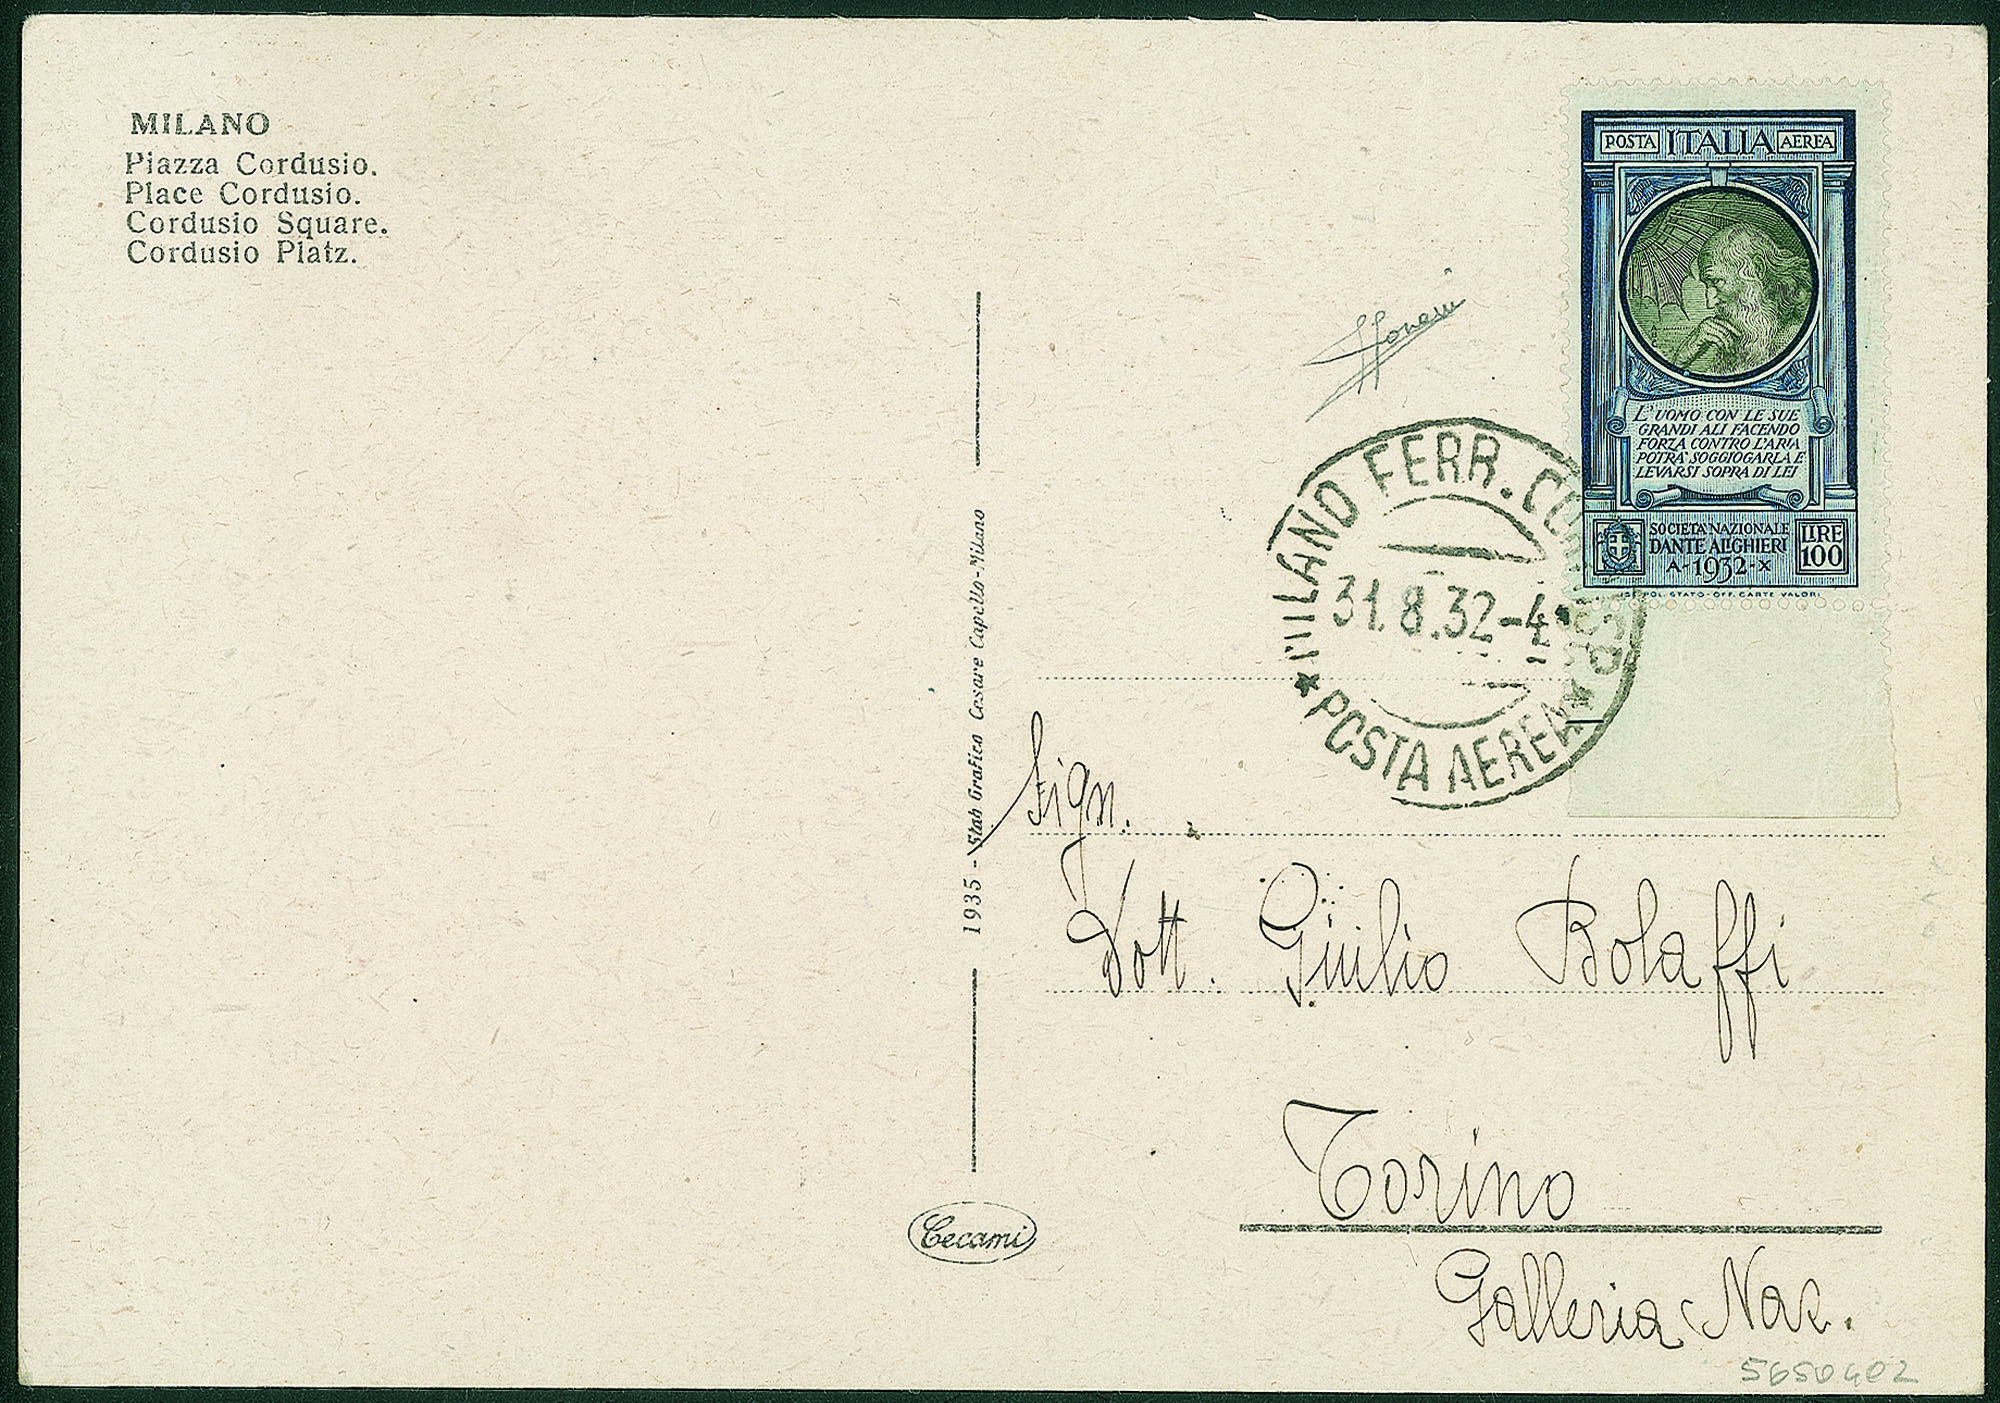 MILANO
Piazza Cordusio.
Place Cordusio.
Cordusio Square.
Cordusio Platz.
1935 - Stab Grafico Cesare Capello - Milano
Cecami
POSTA ITALIA AEREA
L'UOMO CON LE SUE
GRANDI ALI FACENDO
FORZA CONTRO L'ARIA
POTRA' SOGGIOGARLA E
LEVARSI SOPRA DI LEI
SOCIETA NAZIONALE
DANTE ALIGHIERI
A-1932-X
LIRE
100
IST. POL. STATO - OFF. CARTE VALORI
MILANO FERR. CORRISP
31.8.32-4
* POSTA AEREA *
Sign.
Dott. Giulio Bolaffi
Torino
Galleria Naz.
5650402